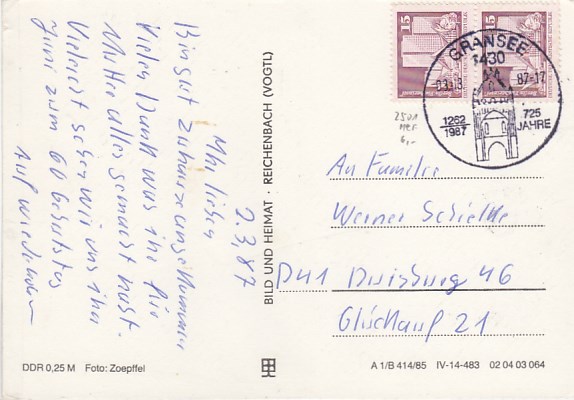 2.3.87
Ihr lieben
Bin gut zuhause angekommen
Vielen Dank was ihr für
Mutter alles gemacht habt.
Vieleicht sehen wir uns
Juni zum 60 Geburtstag
Auf wiedersehen
BILD UND HEIMAT REICHENBACH (VOGTL)
15
15
GRANSEE
1430
87-17
1262
1987
725
JAHRE
An Familie
Werner
D41 Duisburg 46
Glückauf 21
DDR 0,25 M Foto: Zoepffel
A 1/B 414/85 IV-14-483 02 04 03 064